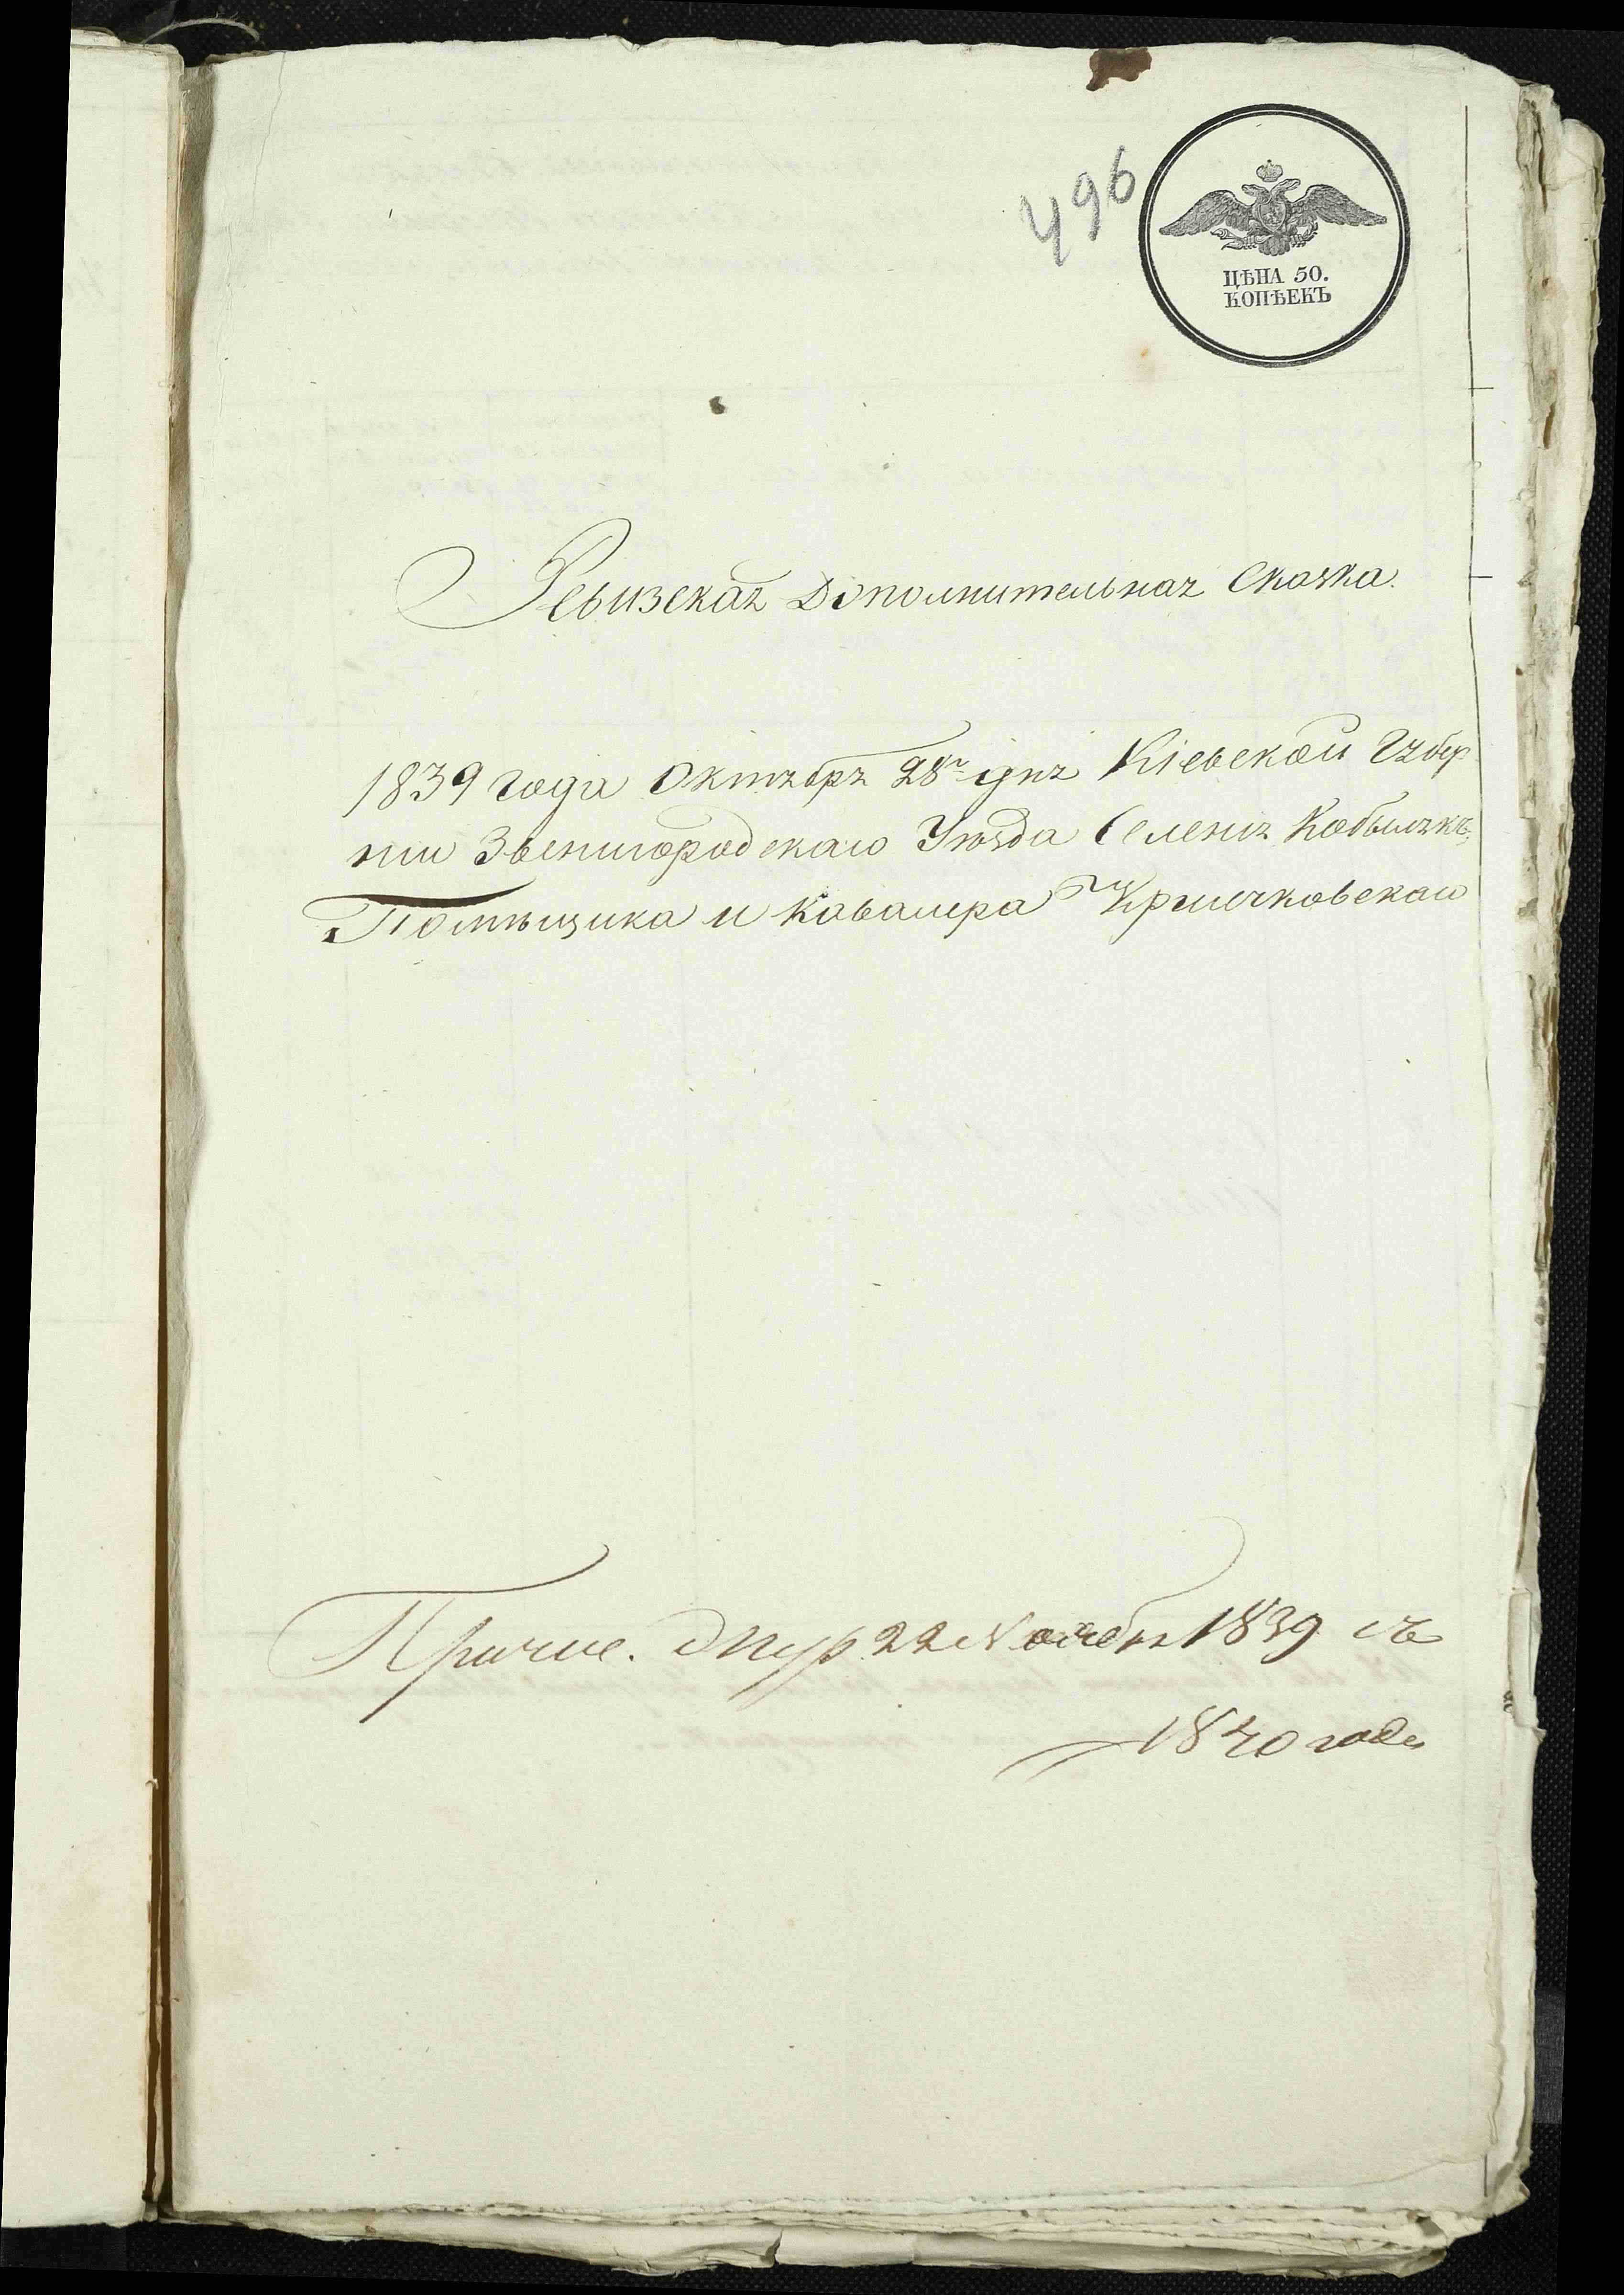 496
ЦѢНА 50.
КОПѢЕКЪ
Ревизская Дополнительная Сказка.
1839 года Октября 28го дня Кіевской Губер
ніи Звенигородскаго Уѣзда Селенія Кобылякъ
Помѣщика и Кавалера
22 Ноября 1839 съ
1840 года